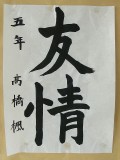 友情
五年 高橋楓